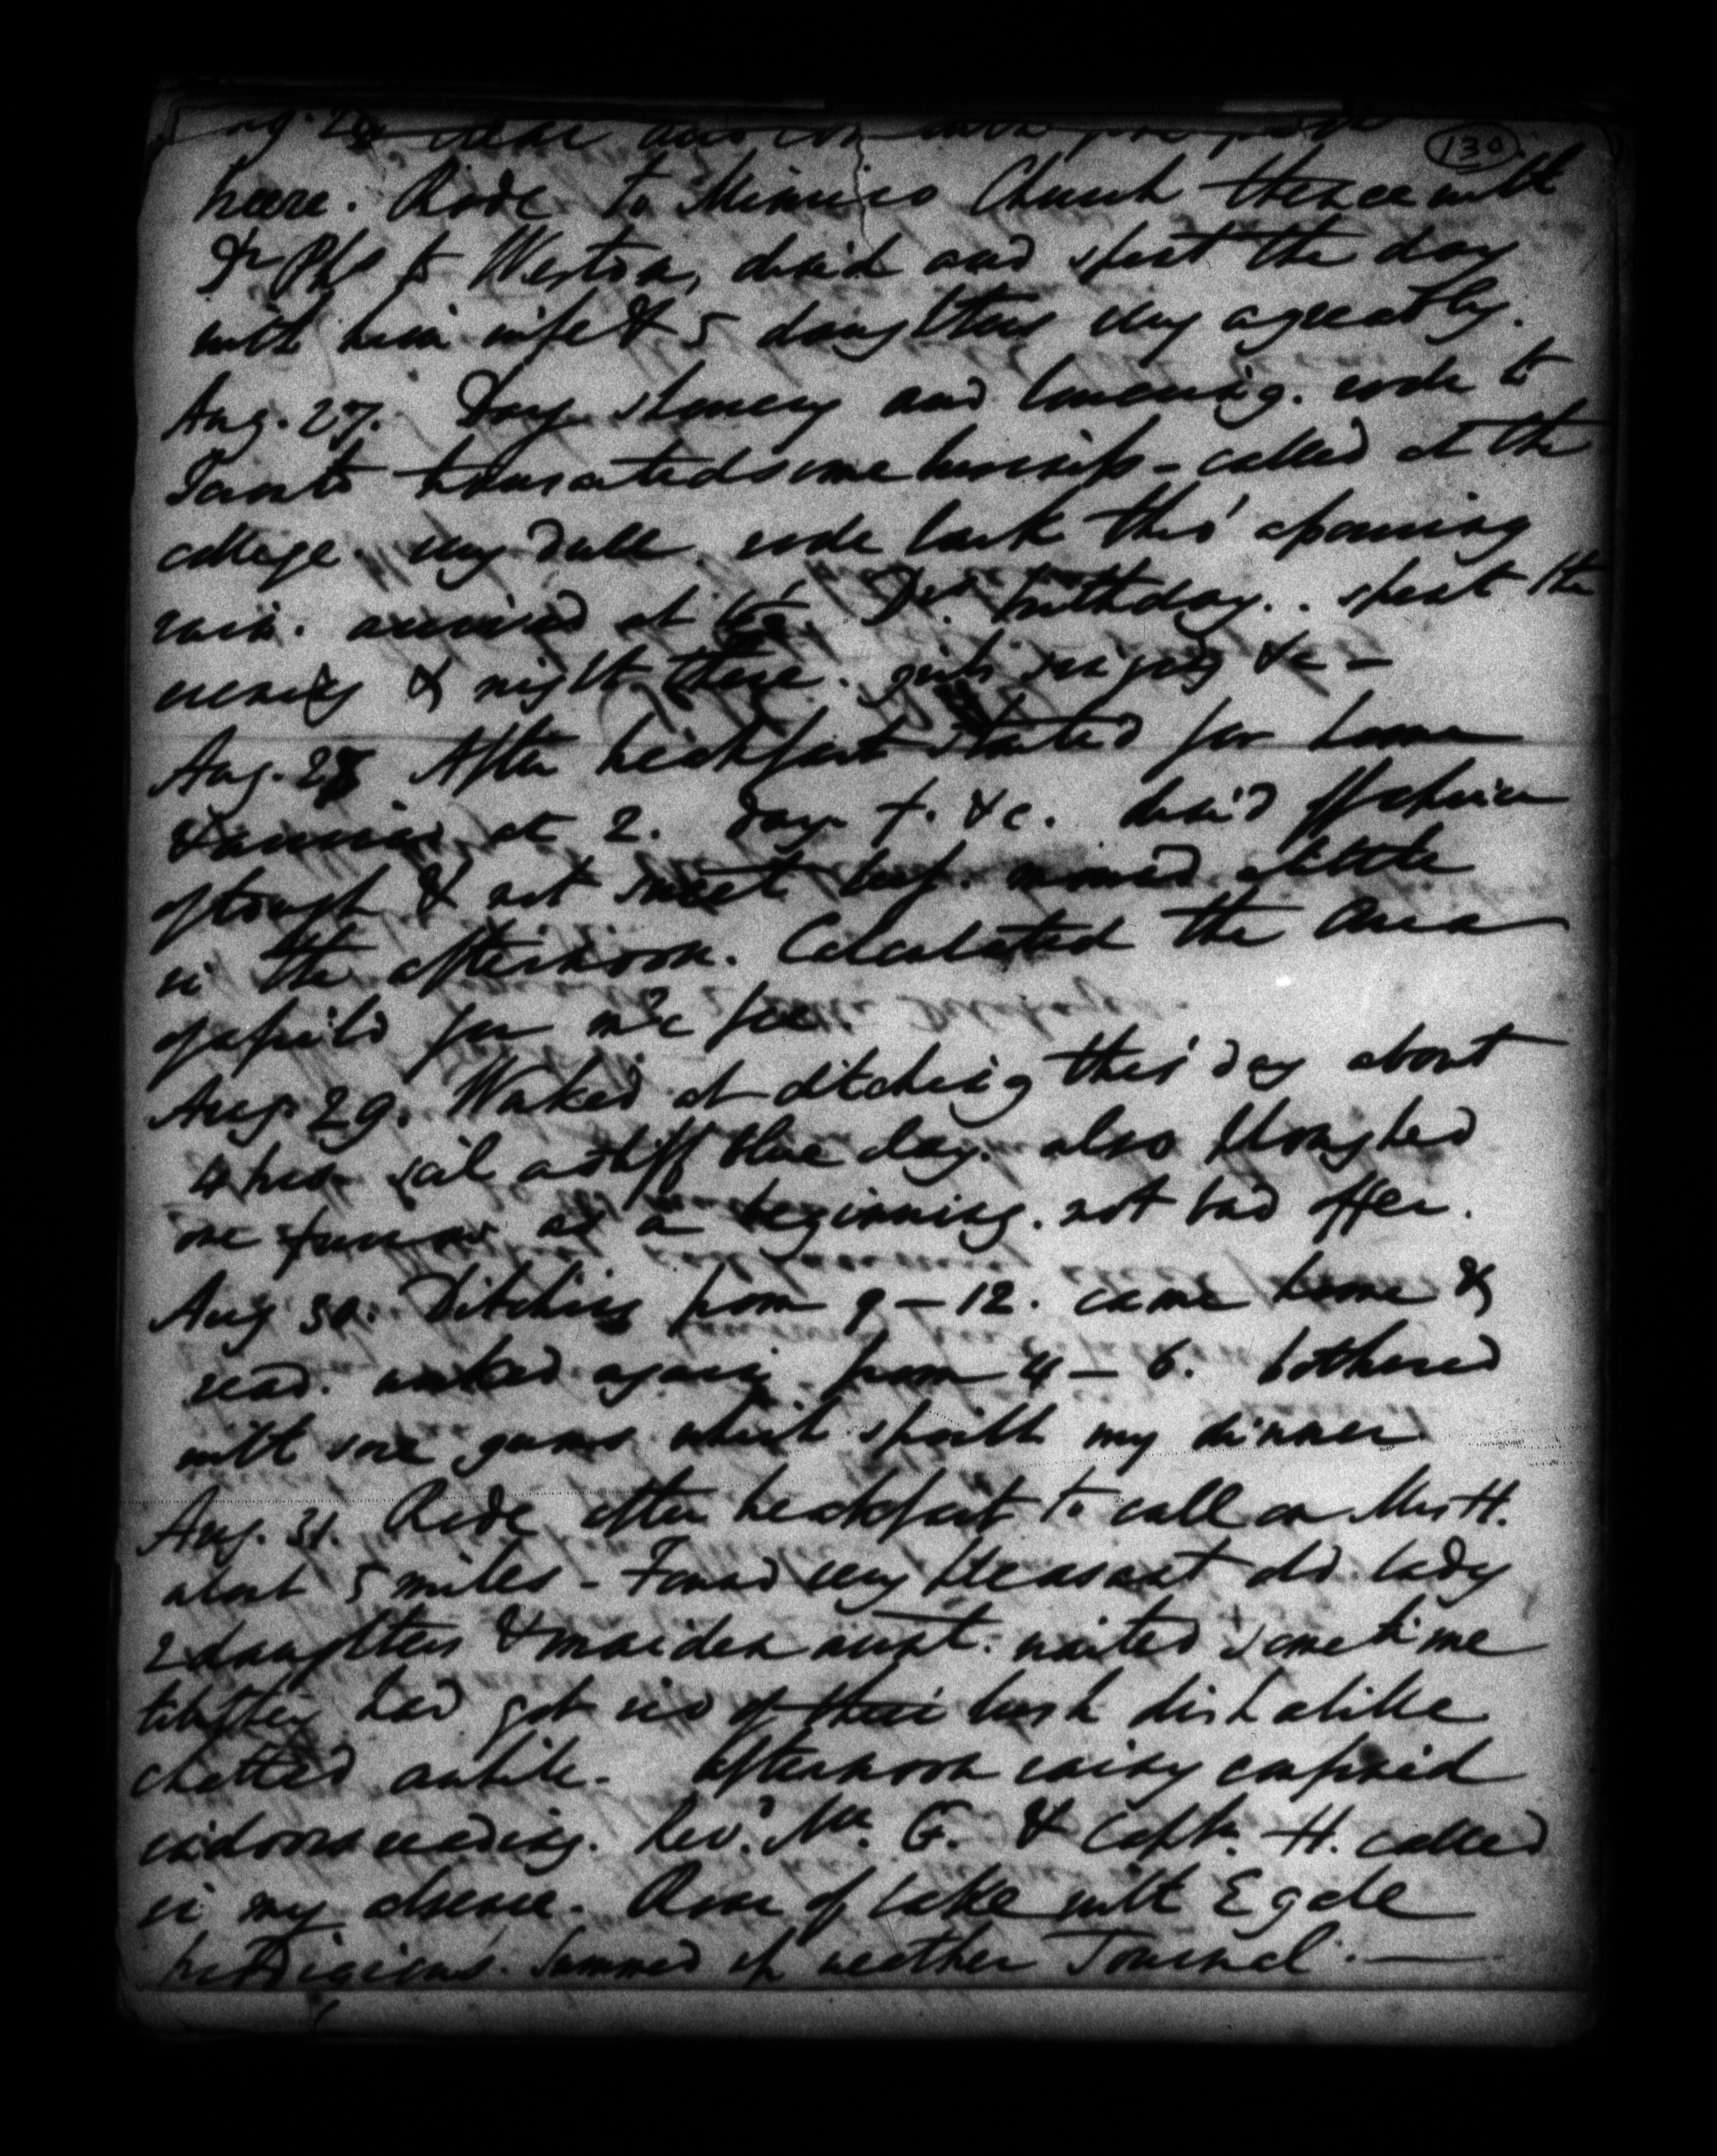 130
Aug. 26
here. Rode to Mimico Church thence with
Dr Phs to Weston, dined and spent the day
with him wife & 5 daughters very agreeably.
Aug. 27. Day showery and lowering. rode to
Toronto transacted some business - called at the
college. very dull rode back thro' a pouring
rain. arrived at Drs. birthday.. spent the
evening & night there. girls singing &c -
Aug. 28 After breakfast started for home
& arrived at 2. Day f. &c. dined off a piece
of tough & not sweet beef. mowed a little
in the afternoon. Calculated the area
of a field for McGee.
Aug. 29. Worked at ditching this day about
4 hrs. soil a stiff blue clay. also ploughed
one furrow as a beginning. not bad offer.
Aug 30. Ditching from 9 - 12. came home &
read. worked again from 4 - 6. bothered
with sore gums which spoilt my dinner
Aug. 31. Rode after breakfast to call on Mrs H.
about 5 miles - Found very pleasant old lady
2 daughters & maiden aunt. waited sometime
till they had got rid of their bush dishabille
chatted awhile - Afternoon rainy confined
indoors reading. Revd. Mr. G. & Capt. H. called
in my absence. Roar of lake with E gale
prodigious. Summed up weather Journal. —